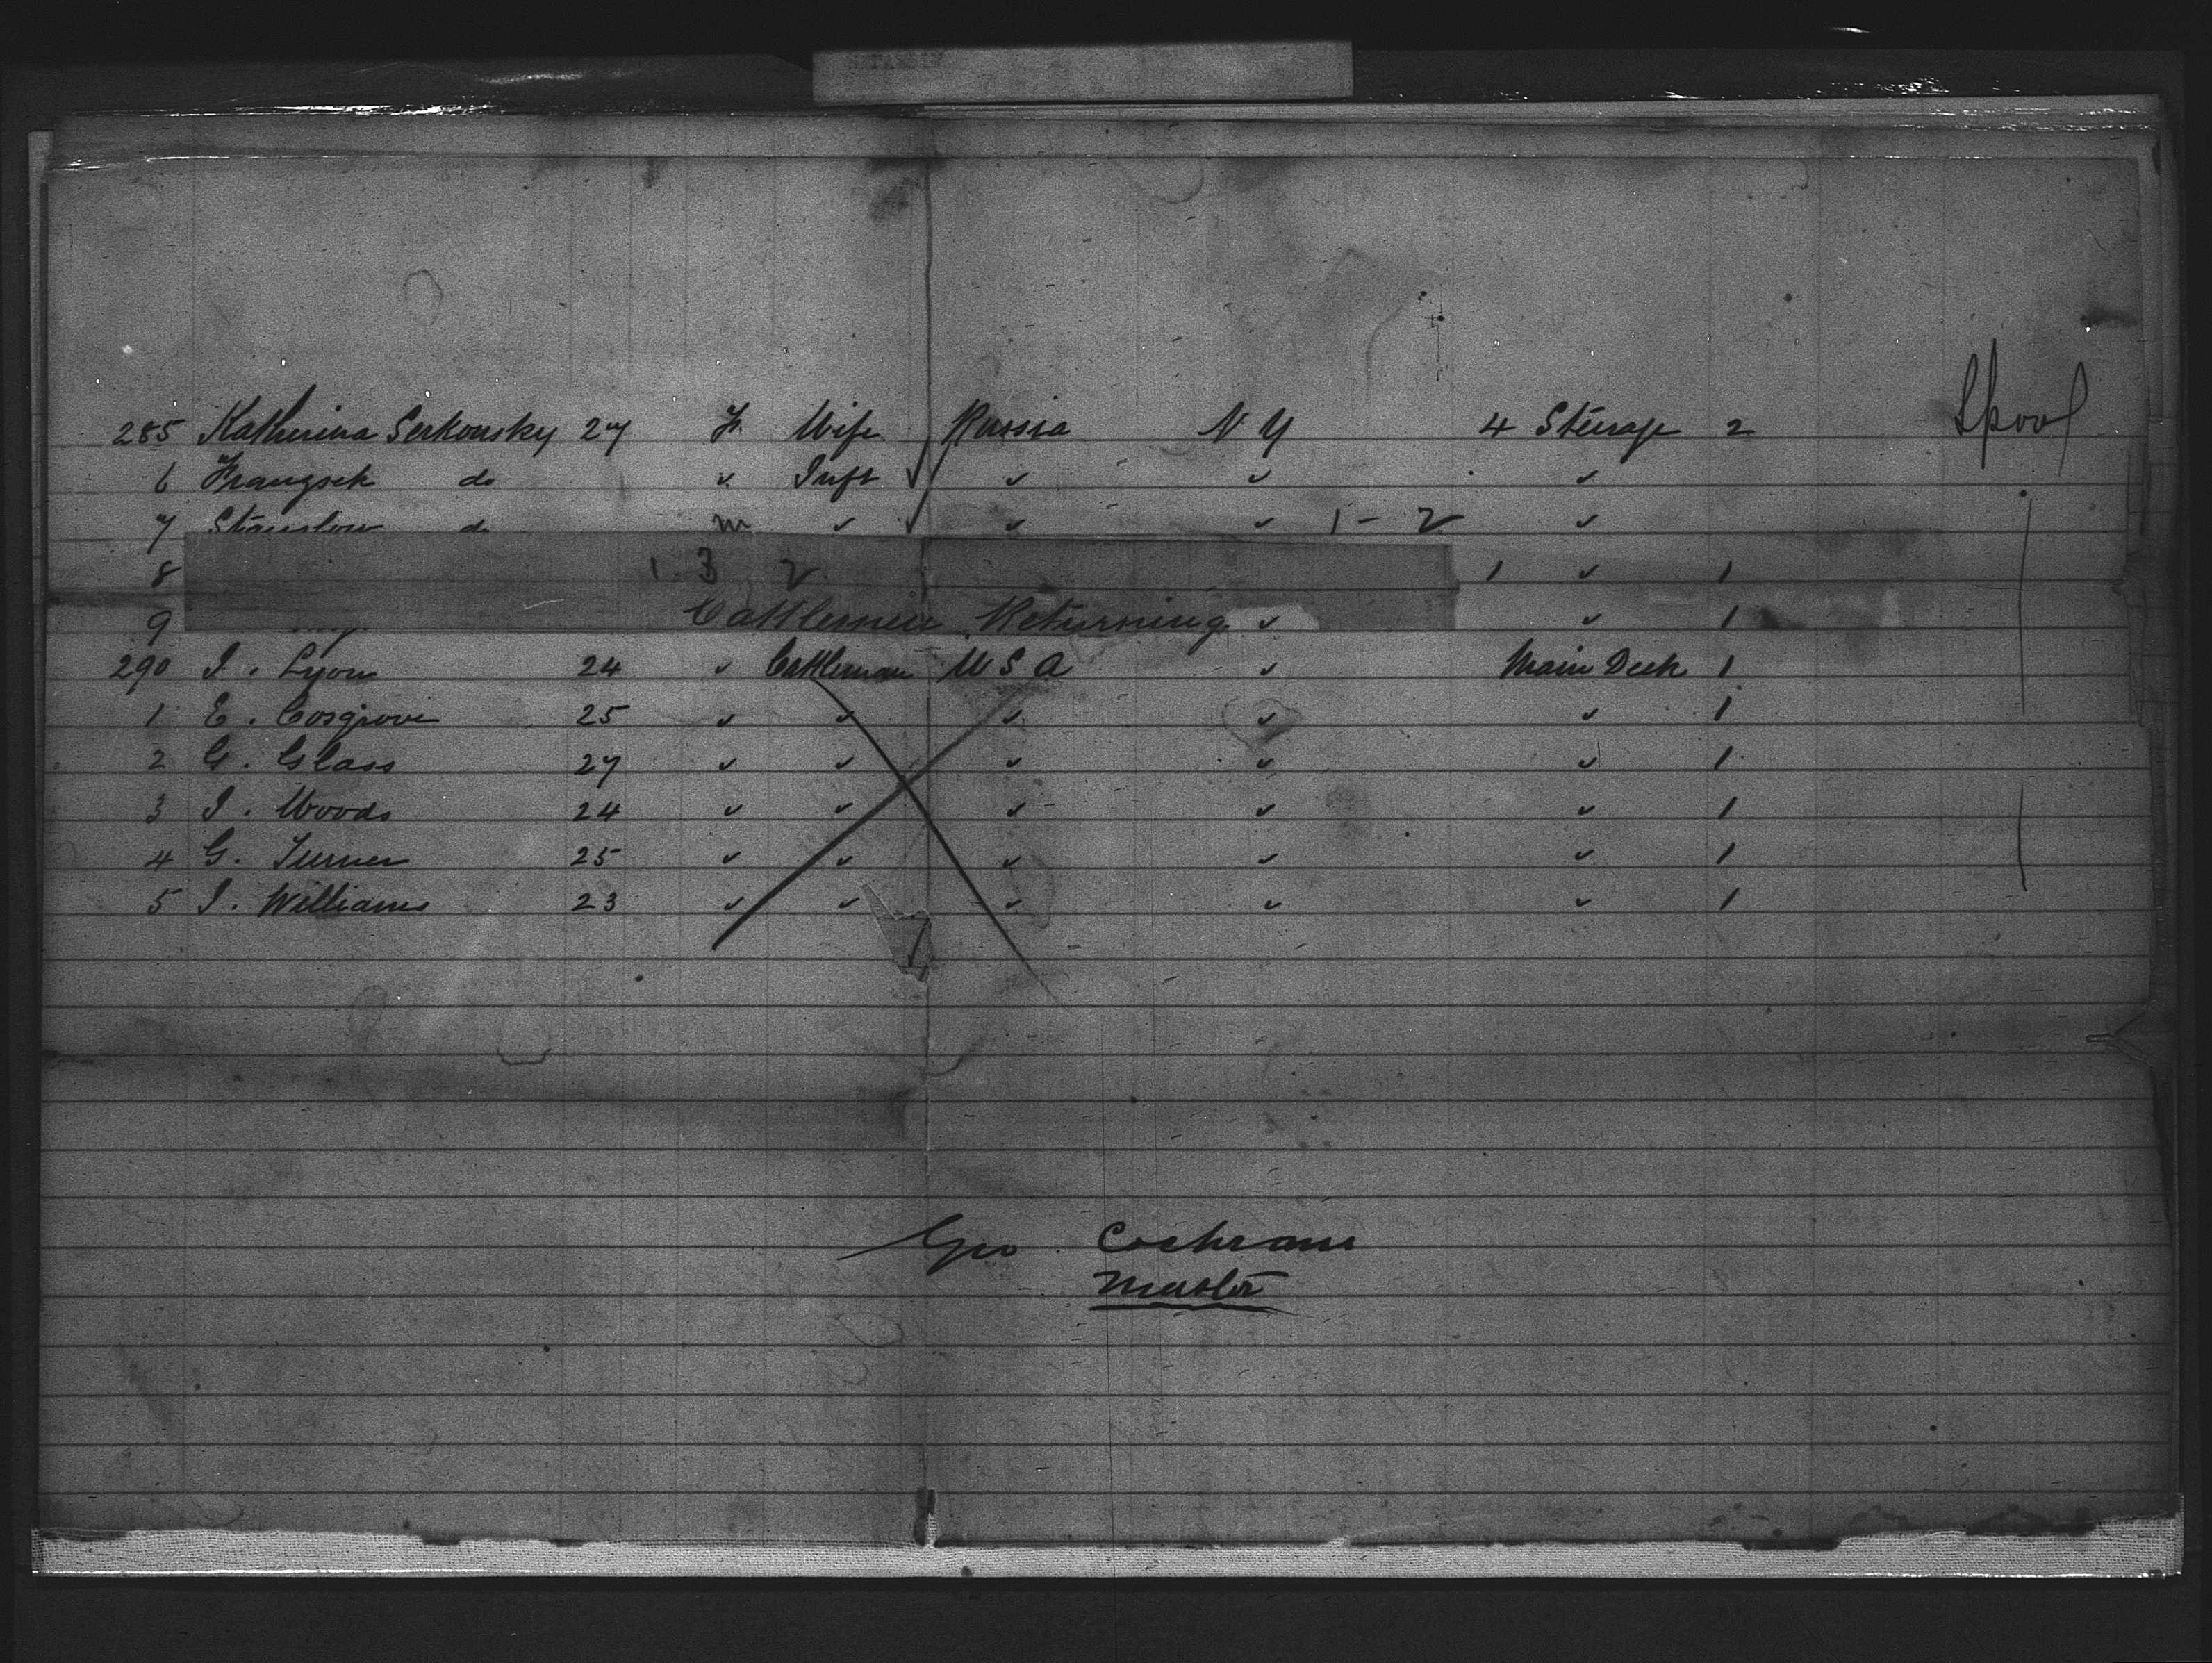 285 Katherina Serkonsky 27 F. Wife Russia N Y 4 Steerage 2 Lpool
6 Frangsek do ✓ Inft ✓ ✓ ✓
7 Stanslow do m ✓ ✓ ✓ 1 - 2 ✓
8 1 3 2 1 ✓ 1
9 Cattlemen Returning ✓ ✓ 1
290 J. Lyons 24 ✓ Cattleman U S A ✓ Main Deck 1
1 E. Cosgrove 25 ✓ ✓ ✓ ✓ ✓ 1
2 G. Glass 27 ✓ ✓ ✓ ✓ ✓ 1
3 J. Woods 24 ✓ ✓ ✓ ✓ ✓ 1
4 G. Turner 25 ✓ ✓ ✓ ✓ ✓ 1
5 J. Williams 23 ✓ ✓ ✓ ✓ ✓ 1
Geo. Cochrane
Master